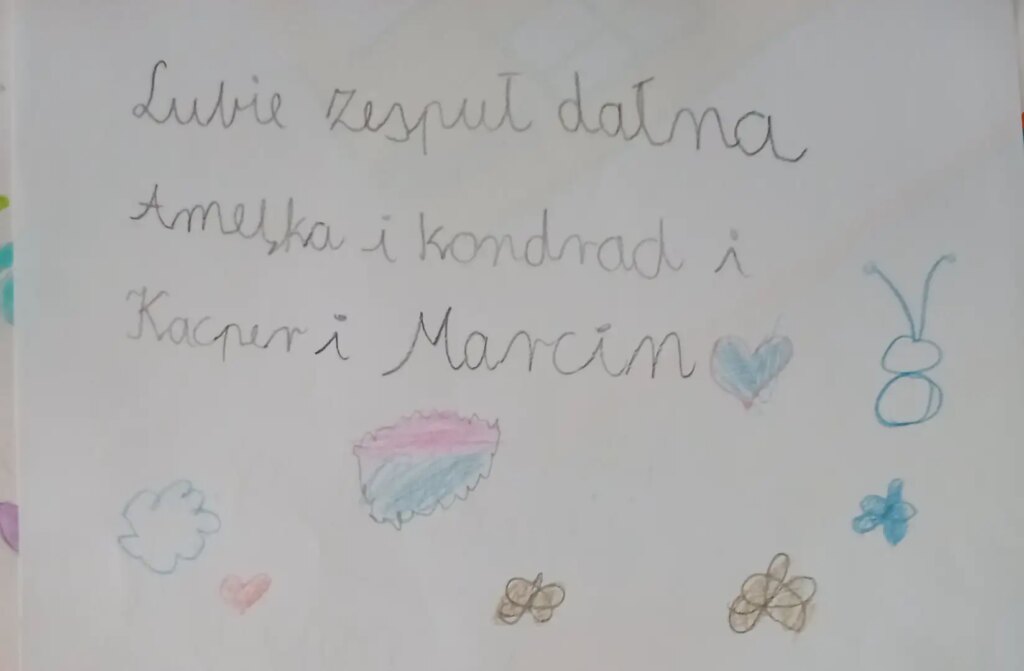 Lubie zespuł dałna
Amelka i kondrad i
Kacper i Marcin